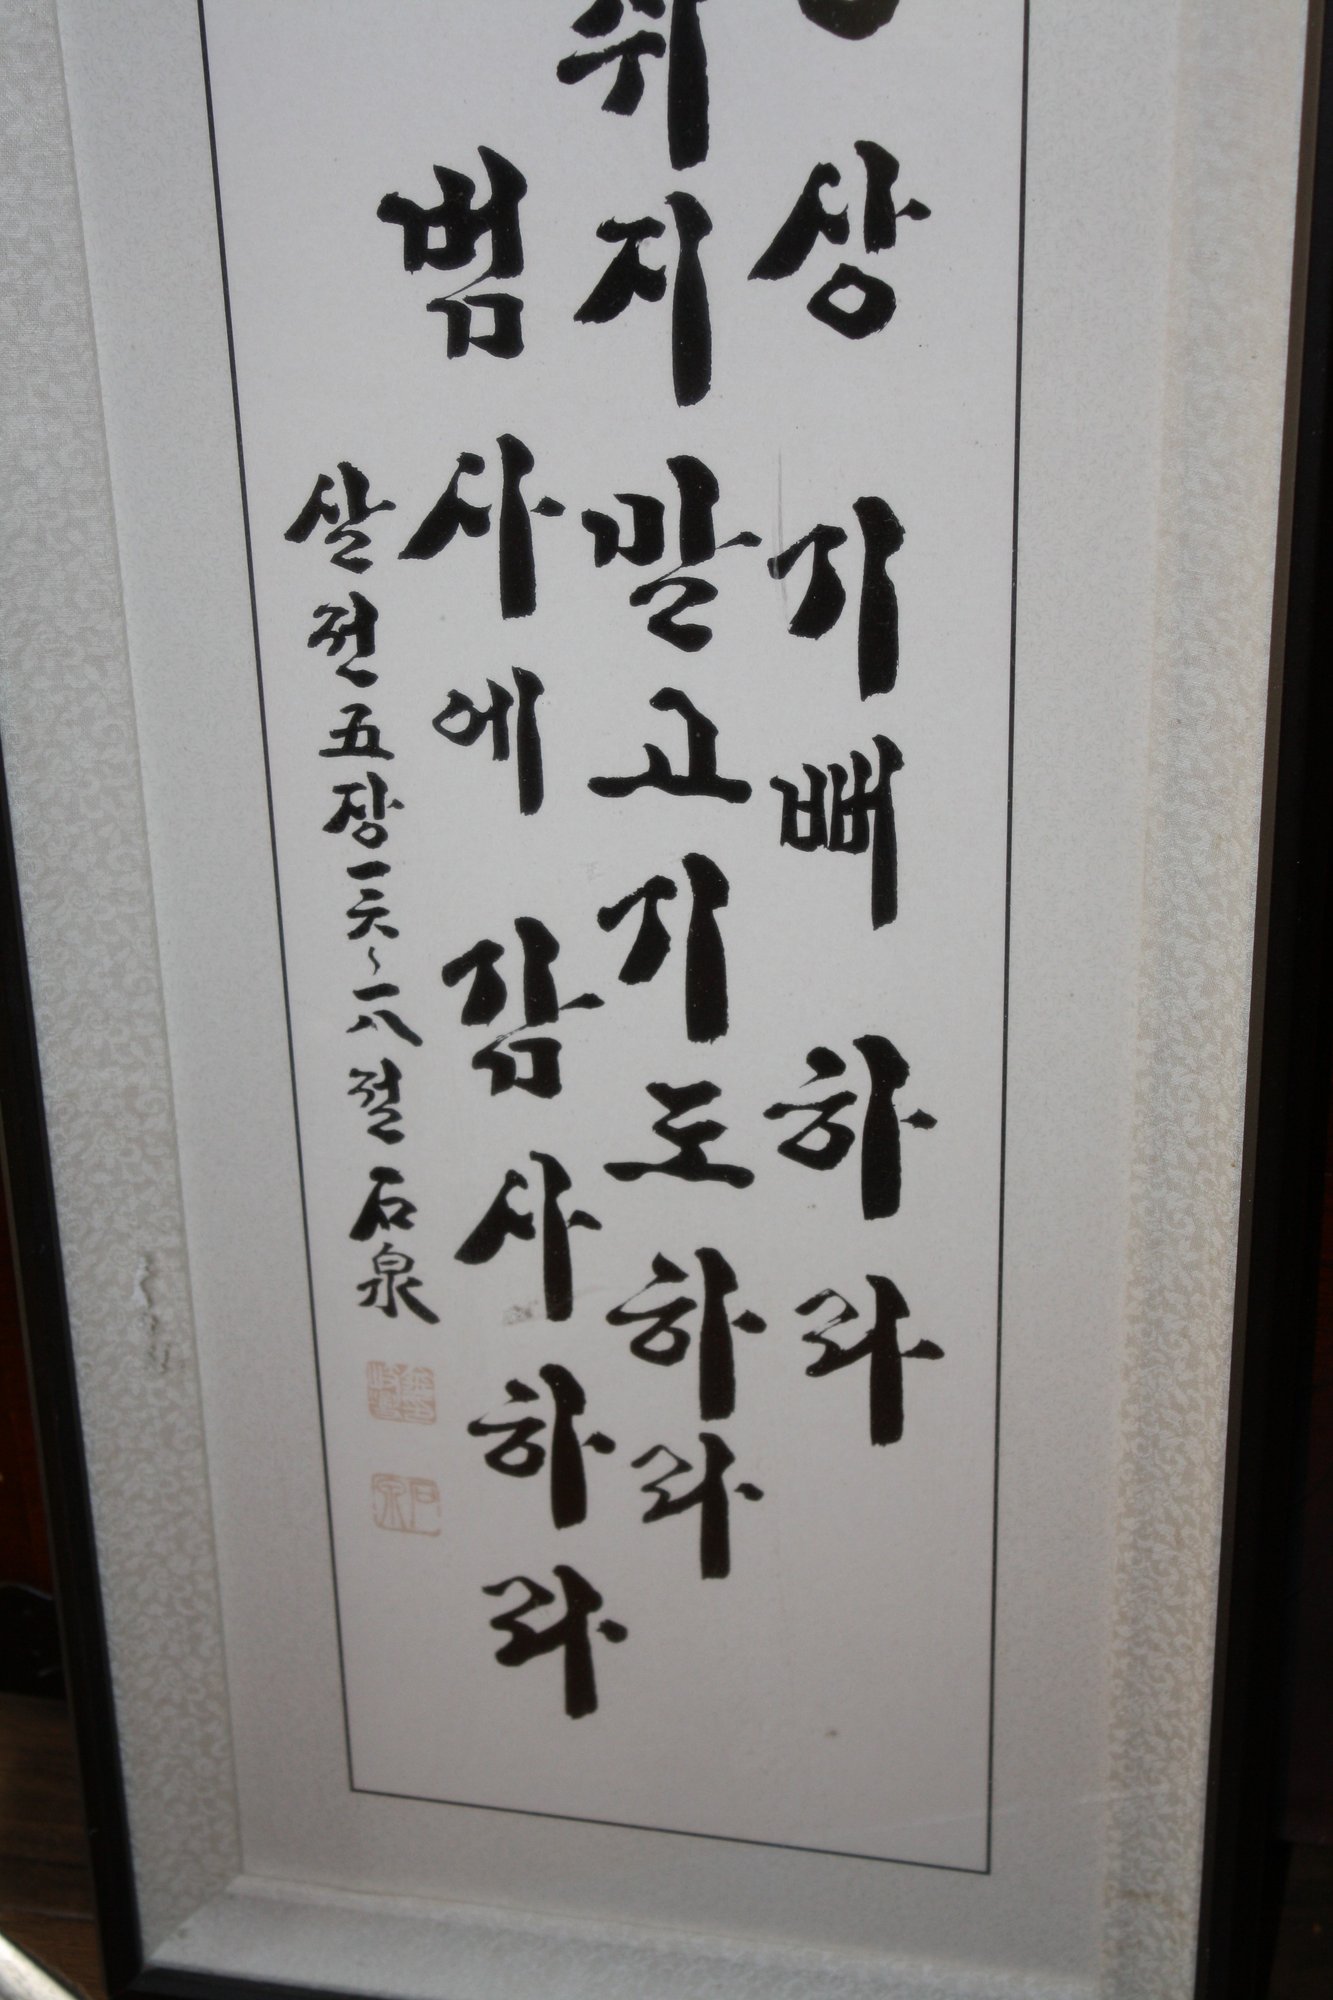 상 기뻐 하라
쉬지 말고 기도 하라
범사에 감사 하라
살전 五장 一六~一八절 石泉